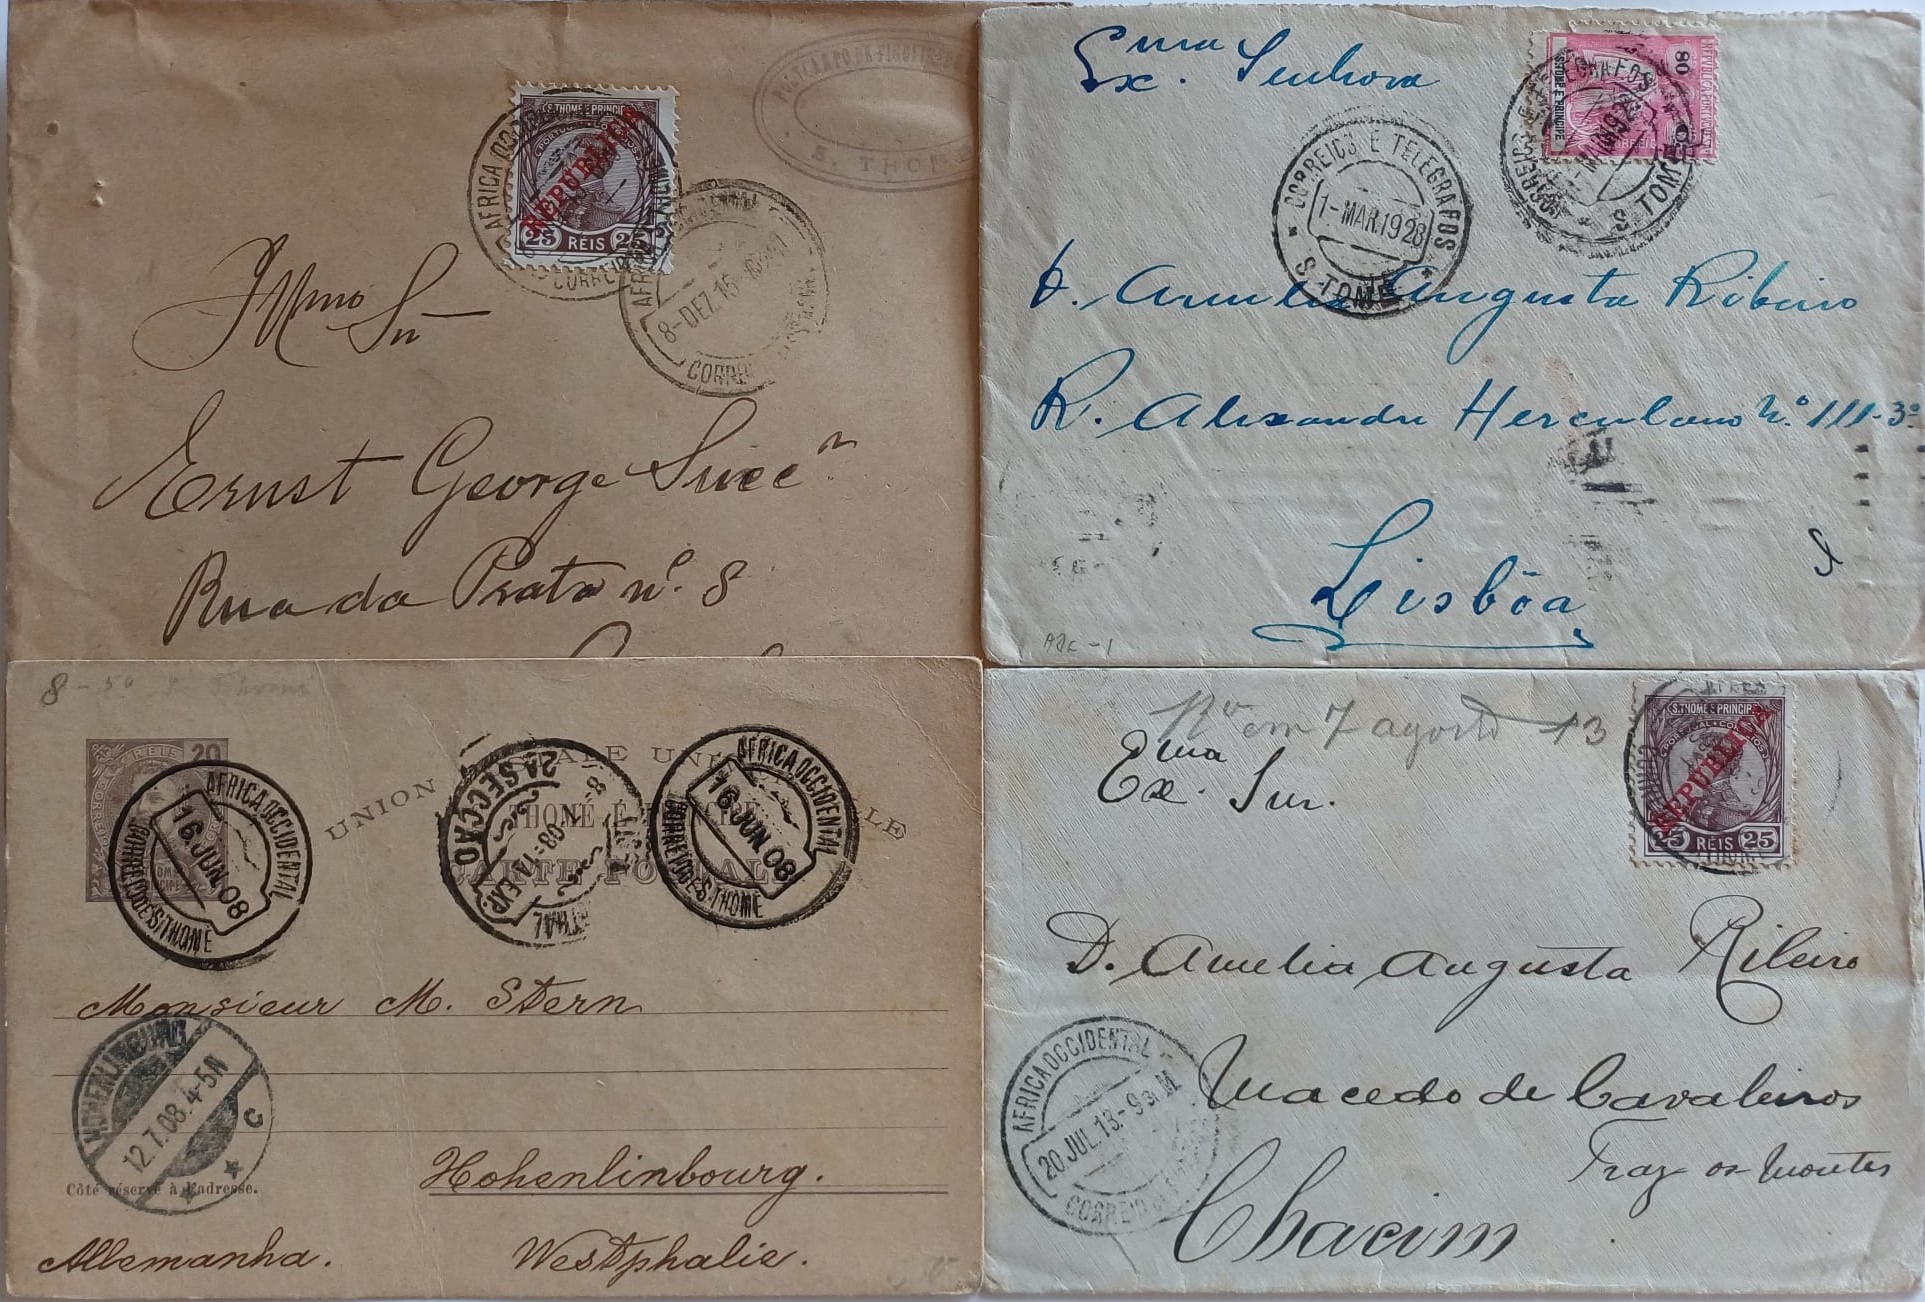 S. THOME E PRINCIPE
REPUBLICA
25 RÉIS 25
S. THOMÉ
AFRICA OCCIDENTAL
8-DEZ.15
CORREIO
Illmo Snr
Ernst George Succ.n
Rua da Prata nº. 8
Exma. Senhora
80
S. TOMÉ E PRINCIPE
CORREIO
CORREIOS E TELEGRAFOS
1-MAR.1928
S. TOMÉ
CORREIOS E TELEGRAFOS
MAR.1928
S. TOMÉ
D. Amelia Augusta Ribeiro
R. Alexandre Herculano Nº. 111-3º
Lisbôa
8-50
RÉIS 20
UNION POSTALE UNIVERSELLE
THOMÉ E PRINCIPE
CARTE POSTALE
AFRICA OCCIDENTAL
16 JUN. 08
CORREIO DE S. THOMÉ
2A SECÇÃO
AFRICA OCCIDENTAL
16 JUN. 08
CORREIO DE S. THOMÉ
Monsieur M. Stern
HOHENLIMBURG
12.7.08.4-5N
C
Côté réservé à l'adresse.
Hohenlinbourg.
Allemanha.
Westphalie.
em 7 agosto 13
Exma. Snr.
S. THOME E PRINCIPE
REPUBLICA
25 RÉIS 25
D. Amelia Augusta Ribeiro
AFRICA OCCIDENTAL
20 JUL. 13 - 9
CORREIO
Macedo de Cavaleiros
Traz os Montes
Chacim